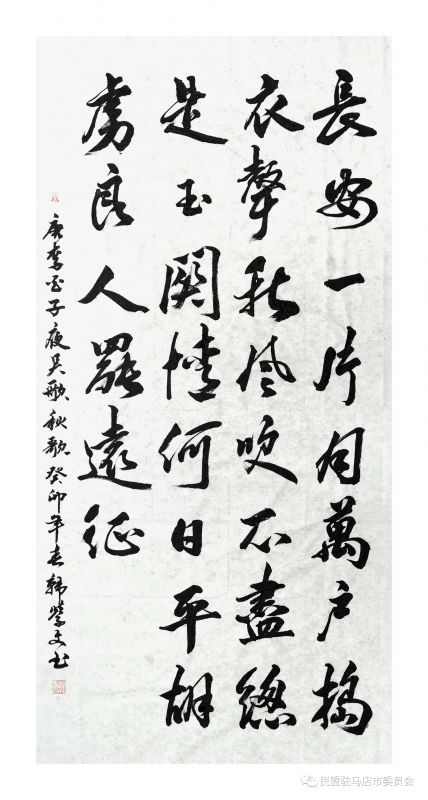 長安一片月萬戶搗
衣聲秋風吹不盡總
是玉關情何日平胡
虜良人罷遠征
唐李白子夜吴歌秋歌癸卯年春韩紫文书
民盟驻马店市委员会